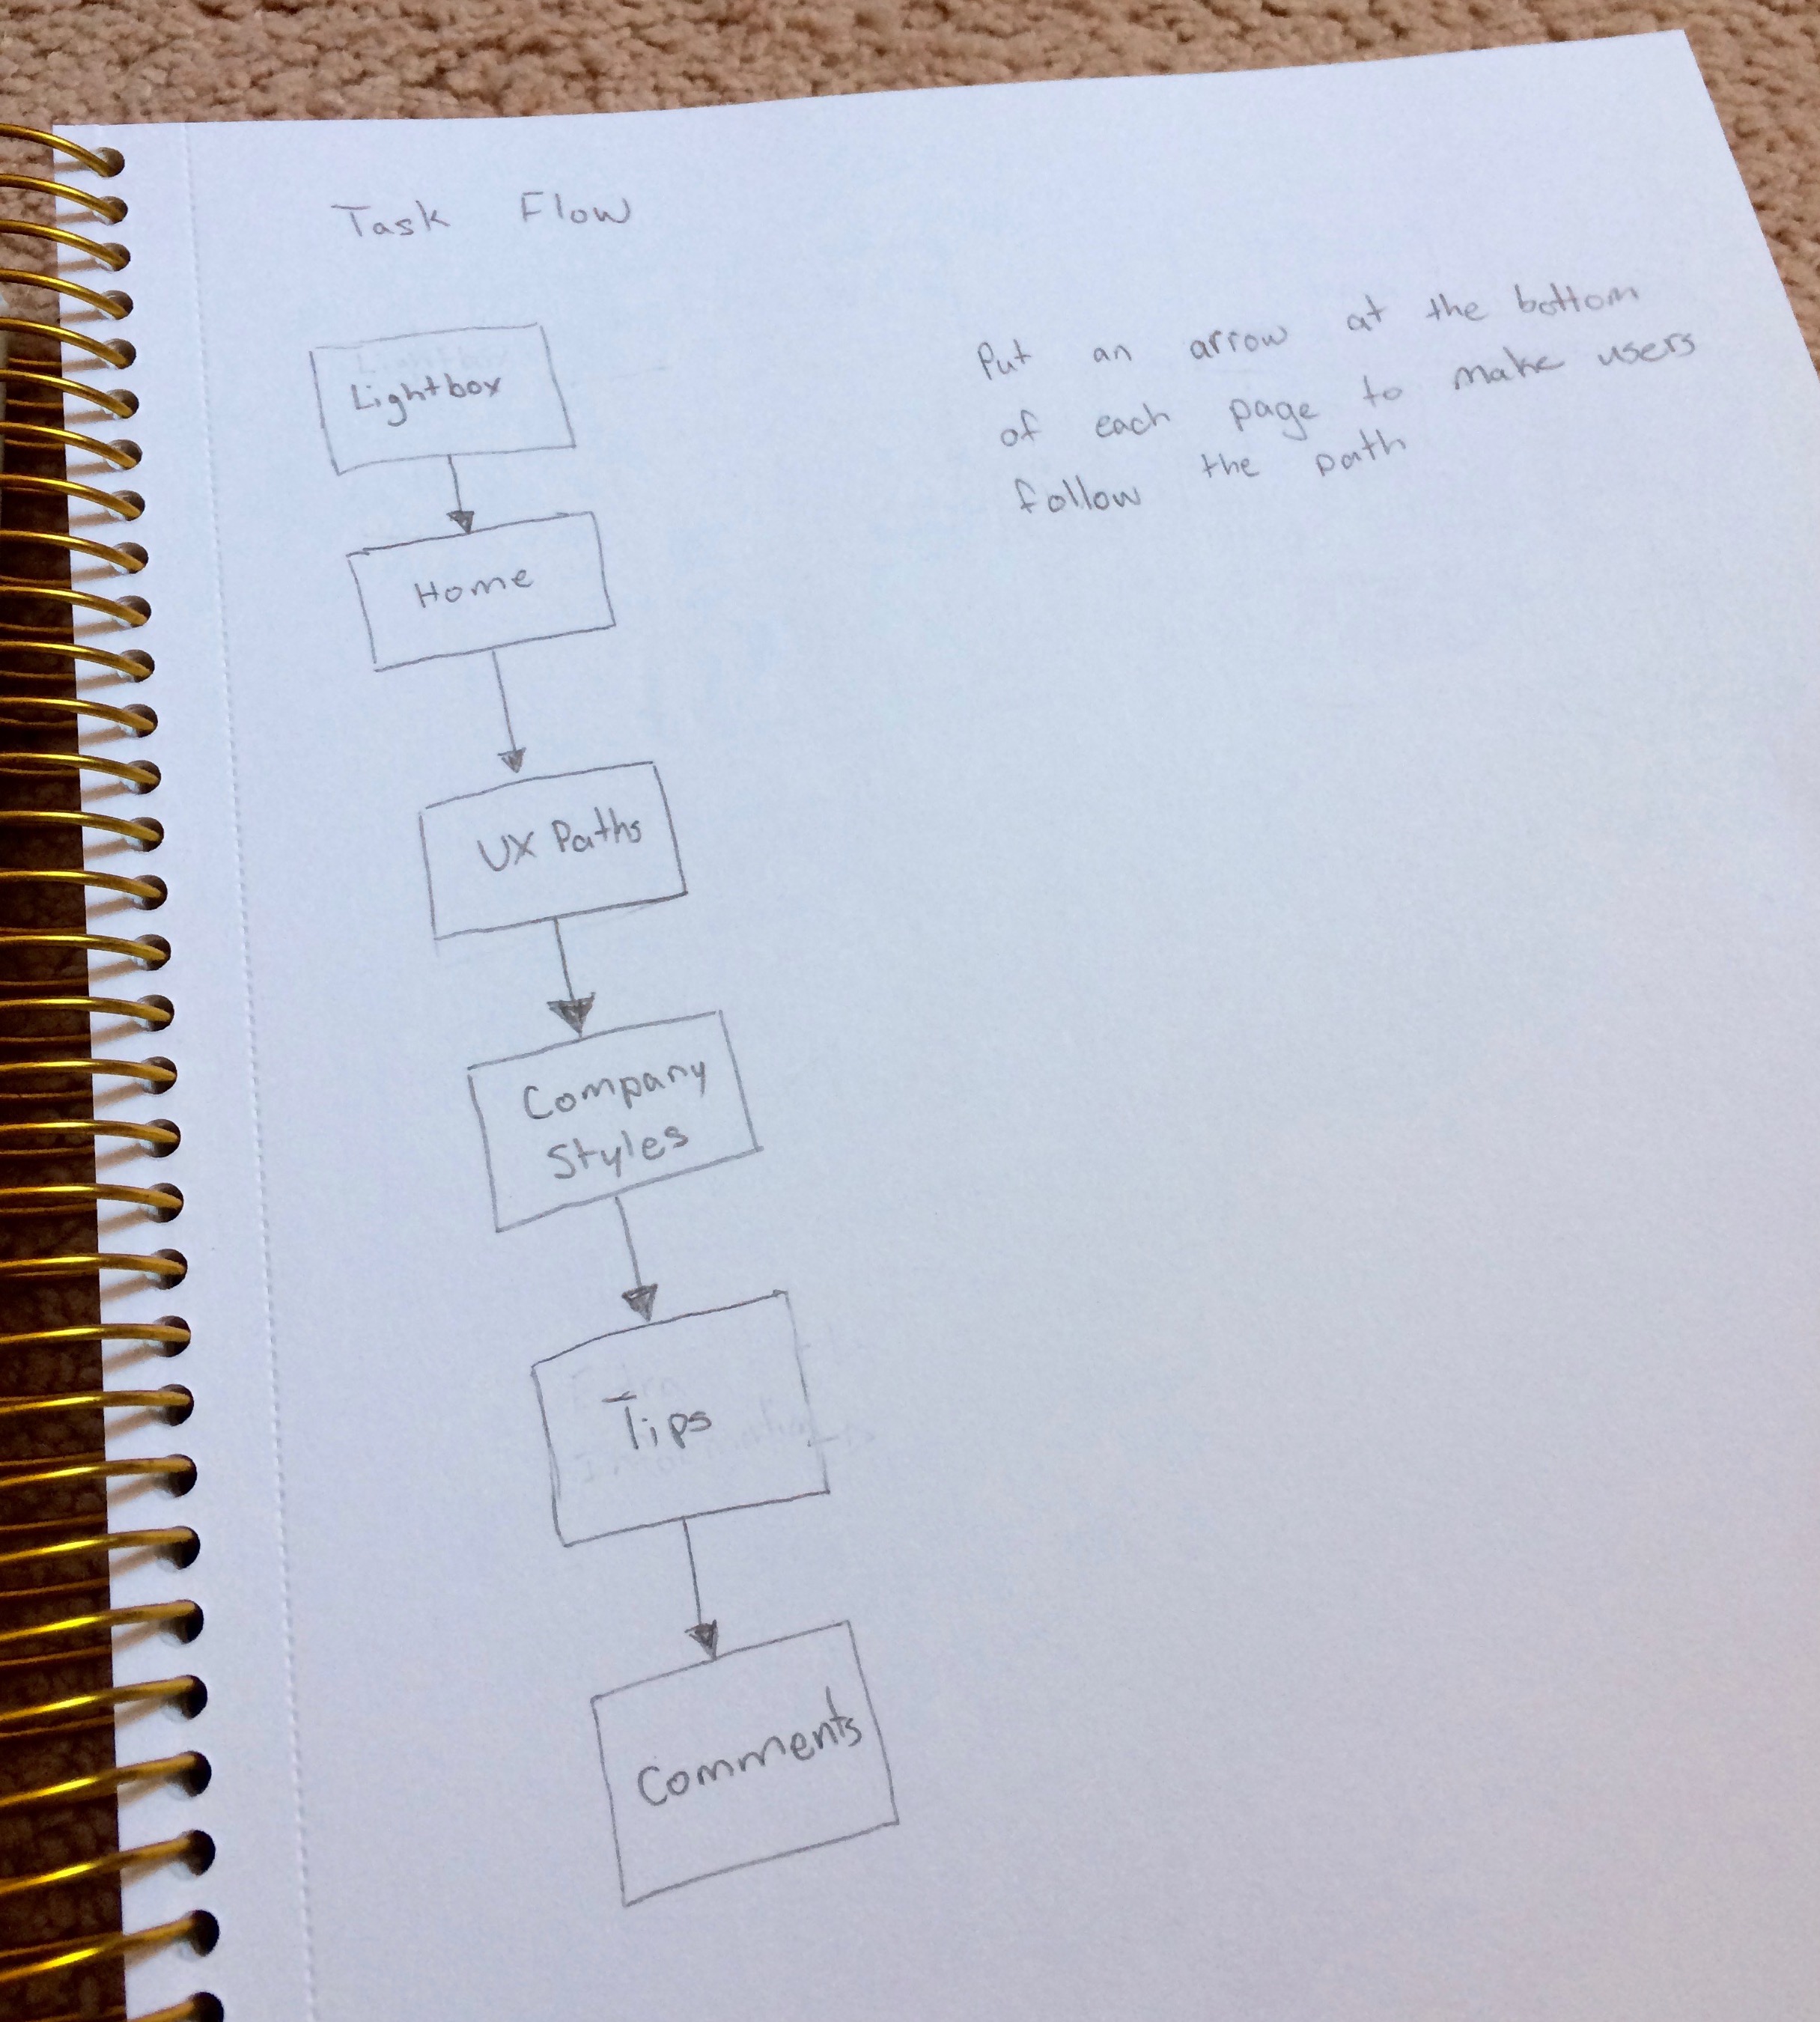 Task Flow
Lightbox
Home
UX Paths
Company
Styles
Tips
Comments
Put an arrow at the bottom
of each page to make users
follow the path